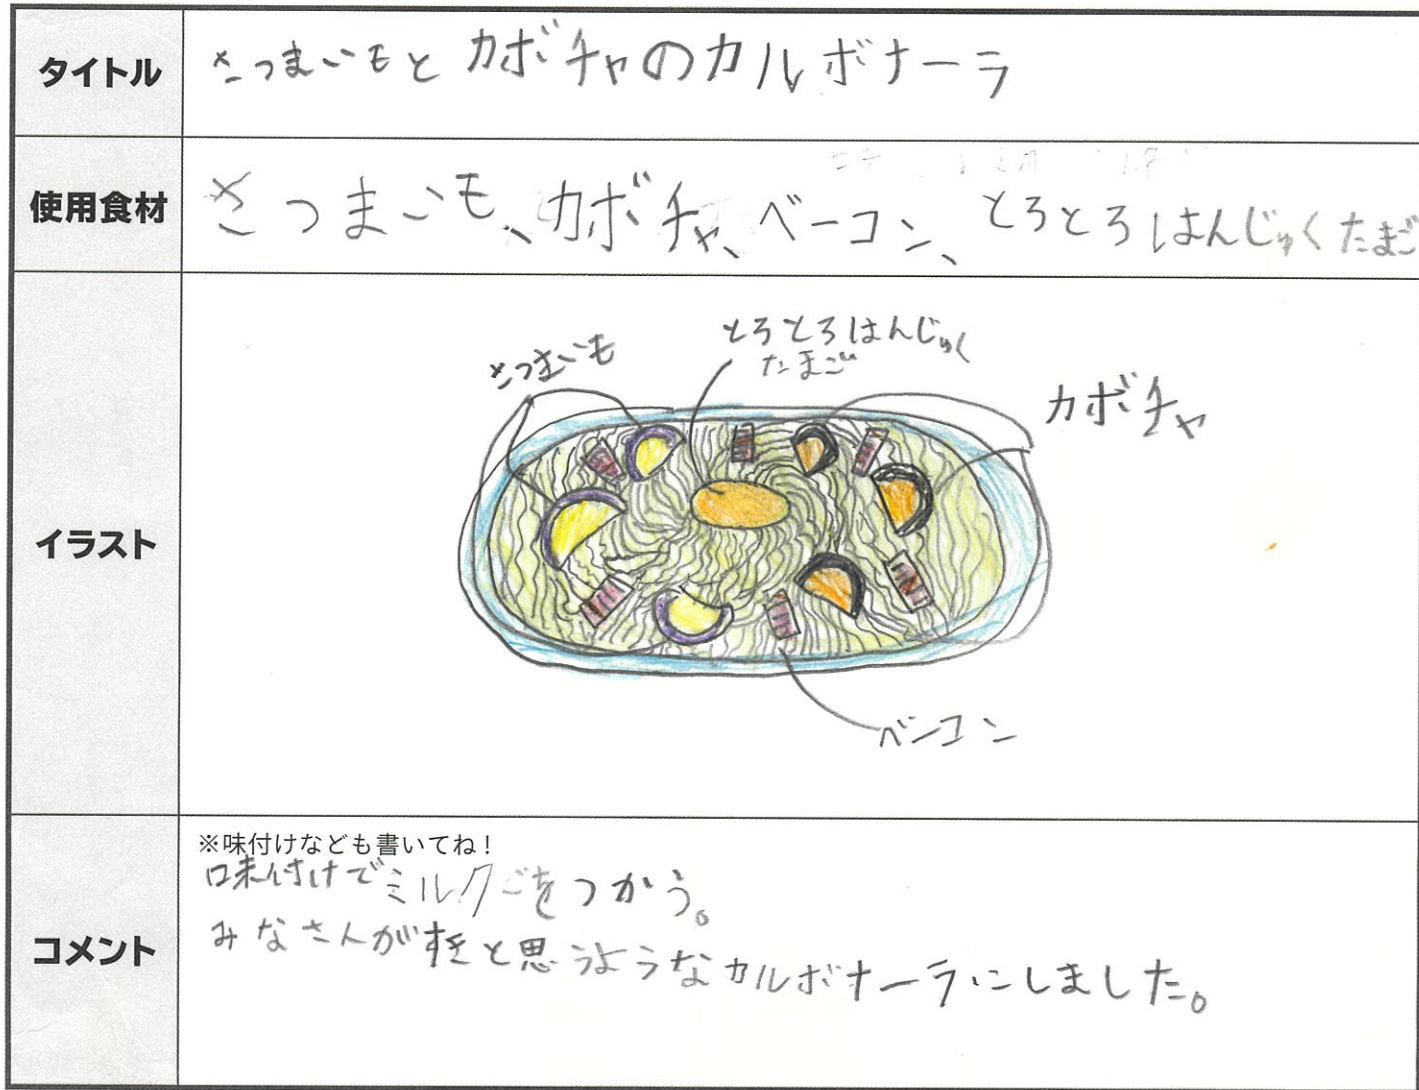 タイトル
さつまいもとカボチャのカルボナーラ
使用食材
さつまいも、カボチャ、ベーコン、とろとろはんじゅくたまご
イラスト
さつまいも
とろとろはんじゅく
たまご
カボチャ
ベーコン
コメント
※味付けなども書いてね!
味付けでミルクをつかう。
みなさんが好きと思うようなカルボナーラにしました。